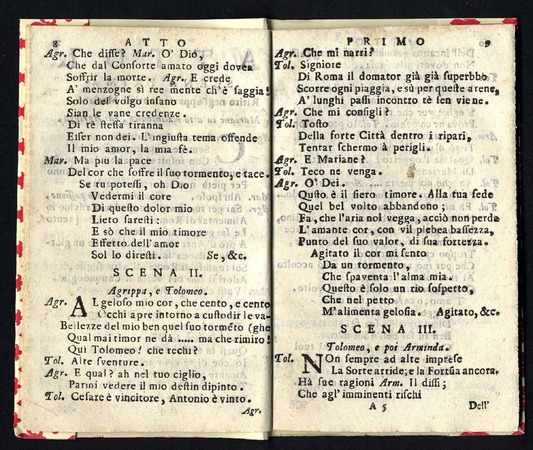 8 ATTO
Agr. Che disse? Mar. O' Dio,
Che dal Consorte amato oggi dovea
Soffrir la morte. Agr. E crede
A' menzogne sì ree mente ch'è saggia!
Solo del volgo insano
Sian le vane credenze.
Di tè stessa tiranna
Esser non dei. L'ingiusta tema offende
Il mio amor, la mia fè.
Mar. Ma piu la pace
Del cor che soffre il suo tormento, e tace.
Se tu potessi, oh Dio
Vedermi il core
Di questo dolor mio
Lieto saresti:
E sò che il mio timore
Effetto dell'amor
Sol lo diresti. Se, &c.
SCENA II.
Agrippa, e Tolomeo.
Agr. AL geloso mio cor, che cento, e cento
Occhi apre intorno a custodir le va-
Bellezze del mio ben quel suo tormēto (ghe
Qual mai timor ne dà ..... ma che rimiro!
Qui Tolomeo! che rechi?
Tol. Alte sventure.
Agr. E qual? ah nel tuo ciglio,
Parmi vedere il mio destin dipinto.
Tol. Cesare è vincitore, Antonio è vinto.
Agr.
PRIMO 9
Agr. Che mi narri?
Tol. Signiore
Di Roma il domator già già superbbo
Scorre ogni piaggia, e sù per queste arene,
A' lunghi passi incontro tè sen viene.
Agr. Che mi consigli?
Tol. Tosto
Della forte Città dentro i ripari,
Tentar schermo à perigli.
Agr. E Mariane?
Tol. Teco ne venga.
Agr. O' Dei.
Qusto è il fiero timore. Alla tua fede
Quel bel volto abbandono;
Fa, che l'aria nol vegga, acciò non perda
L'amante cor, con vil plebea bassezza,
Punto del suo valor, di sua fortezza.
Agitato il cor mi sento
Da un tormento,
Che spaventa l'alma mia.
Questo è solo un rio sospetto,
Che nel petto
M'alimenta gelosia. Agitato, &c.
SCENA III.
Tolomeo, e poi Arminda.
Tol. NOn sempre ad alte imprese
La Sorte arride; e la Fortūa ancora,
Hà sue ragioni Arm. Il dissi;
Che agl'imminenti rischi
A 5 Dell'